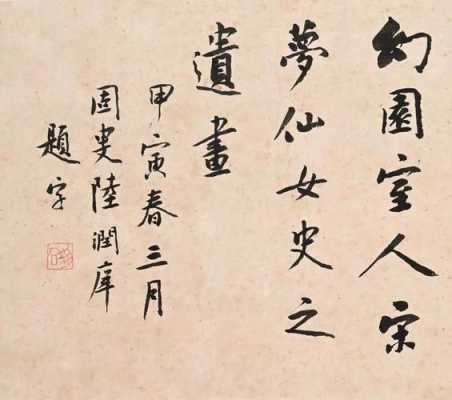 幻園室人宋
夢仙女史之
遺畫
甲寅春三月
固叟陸潤庠
題字